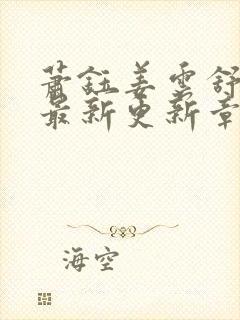 萧钰姜云舒
最新更新章
海空